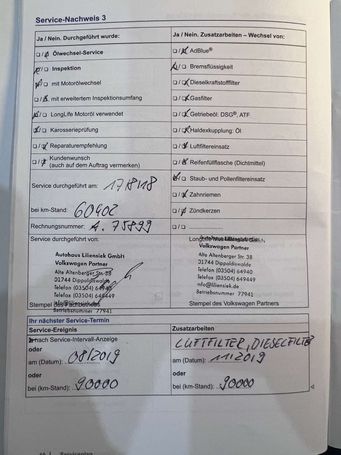 Service-Nachweis 3
Ja / Nein. Durchgeführt wurde:
Ölwechsel-Service
Inspektion
mit Motorölwechsel
mit erweitertem Inspektionsumfang
LongLife Motoröl verwendet
Karosserieprüfung
Reparaturempfehlung
Kundenwunsch
(auch auf dem Auftrag vermerken)
Service durchgeführt am: 17/8/18
bei km-Stand: 60402
Rechnungsnummer: A. 75899
Service durchgeführt von:
Autohaus Liliensiek GmbH
Volkswagen Partner
Alte Altenberger Str. 38
01744 Dippoldiswalde
Telefon (03504) 64940
Telefax (03504) 649449
info@liliensiek.de
Betriebsnummer 77941
Stempel des
Ja / Nein. Zusatzarbeiten – Wechsel von:
AdBlue®
Bremsflüssigkeit
Dieselkraftstofffilter
Gasfilter
Getriebeöl: DSG®, ATF
Haldexkupplung: Öl
Luftfiltereinsatz
Reifenfüllflasche (Dichtmittel)
Staub- und Pollenfiltereinsatz
Zahnriemen
Zündkerzen
Volkswagen Partner
Alte Altenberger Str. 38
01744 Dippoldiswalde
Telefon (03504) 64940
Telefax (03504) 649449
info@liliensiek.de
Betriebsnummer 77941
Stempel des Volkswagen Partners
Ihr nächster Service-Termin
Service-Ereignis
nach Service-Intervall-Anzeige
oder
am (Datum): 08/2019
oder
bei (km-Stand): 90000
Zusatzarbeiten
LUFTFILTER, DIESELFILTER
am (Datum): 11.2019
oder
bei (km-Stand): 90000
Serviceplan